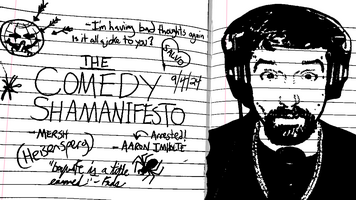 - I'm having bad thoughts again
Is it all a joke to you?
SALVO
THE
COMEDY
SHAMANIFESTO
9/4/24
- MERSH
(Heisensperg)
Arrested!
- AARON IMHOLTE
is a title
earned" - Fada